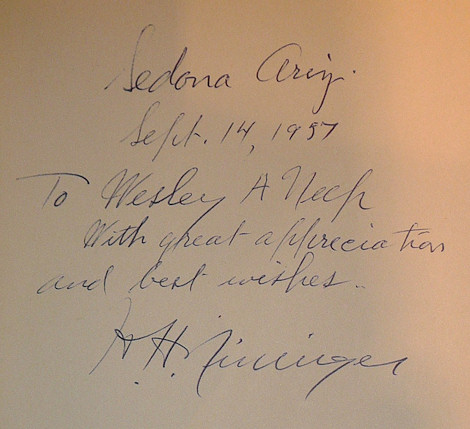 Sedona Ariz.
Sept. 14, 1957
To Wesley A Neep
With great appreciation
and best wishes..
H. H. Nininger